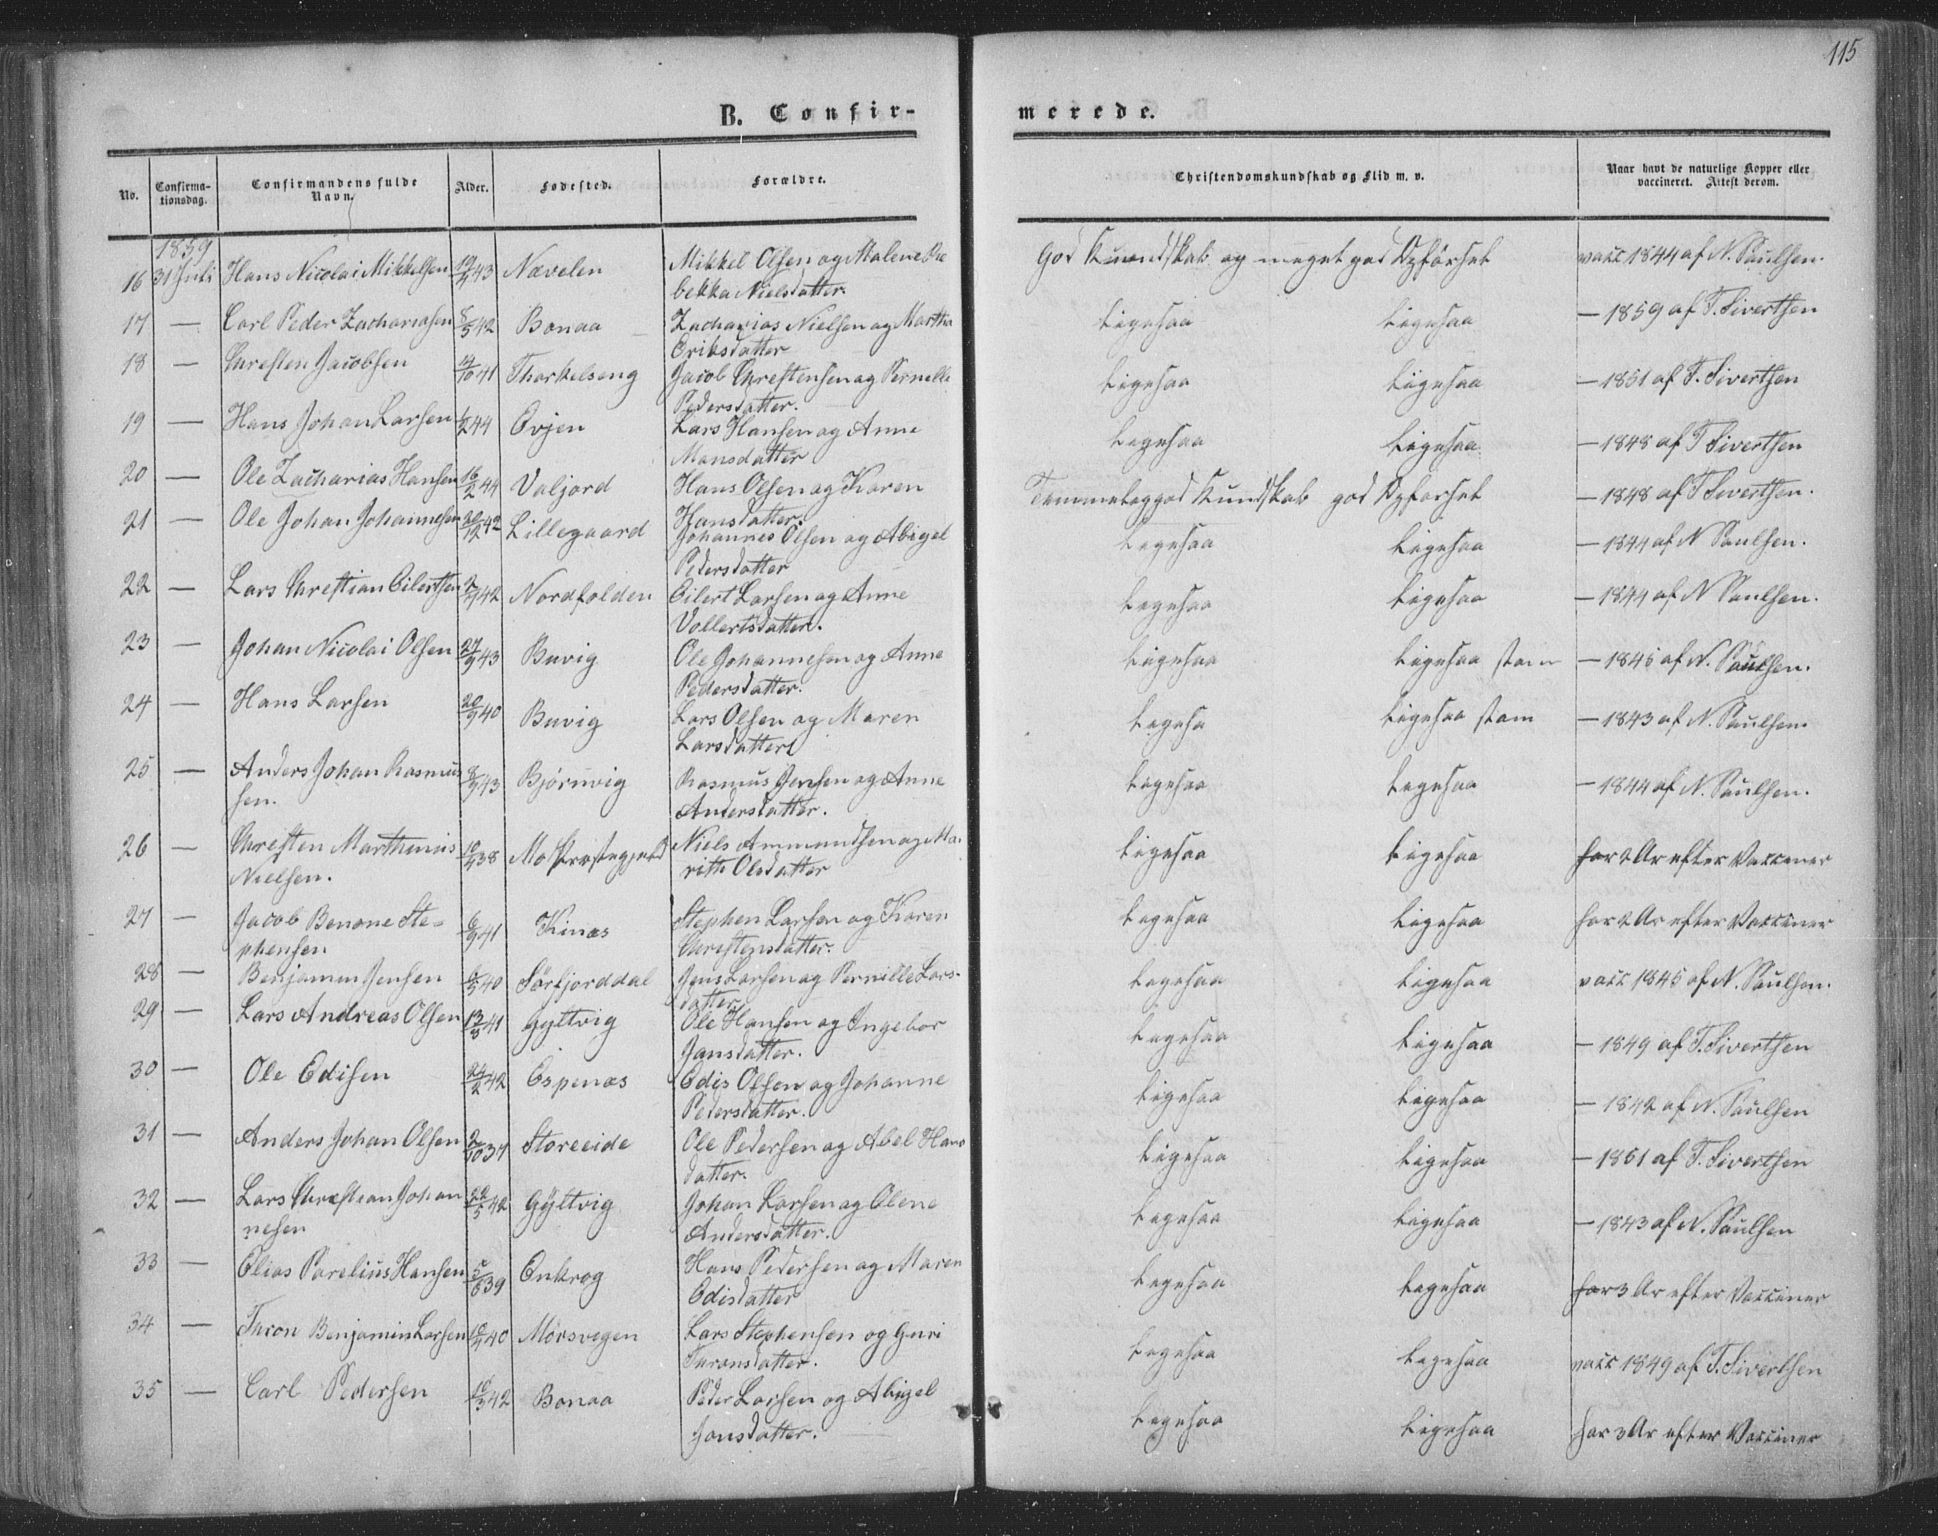 115
B. Confir-
merede.
No.
Confirma-
tionsdag.
Confirmandens fulde
Navn.
Alder.
Fødested.
Forældre.
Christendomskundskab og Flid m. v.
Naar havt de naturlige Kopper eller
vaccineret. Attest derom.
1859
16 31 Juli Hans Nicolai Mikkelsen 43 Nævelen Mikkel Olsen og Malene Re
bekka Nielsdatter. God Kundskab og meget god Opførsel vacc 1844 af N. Saulsen.
17 — Carl Peder Zachariasen 42 Bonaa Zacharias Nielsen og Martha
Eriksdatter Ligesaa Ligesaa — 1859 af T. Sivertsen
18 — Christen Jacobsen 41 Thorkelseng Jacob Christensen og Pernelle
Pedersdatter. Ligesaa Ligesaa — 1851 af T. Sivertsen
19 — Hans Johan Larsen 44 Evjen Lars Hansen og Anne
Mansdatter Ligesaa Ligesaa — 1848 af T Sivertsen
20 — Ole Zacharias Hansen 16/2 44 Valjord Hans Olsen og Karen
Hansdatter. Temmelig god Kundskab god Opførsel — 1848 af T Sivertsen.
21 — Ole Johan Johannesen 42 Lillegaard Johannes Olsen og Abigel
Pedersdatter Ligesaa Ligesaa — 1844 af N Saulsen.
22 — Lars Christian Eilertsen 42 Nordfolden Eilert Larsen og Anne
Vollertsdatter. Ligesaa Ligesaa — 1844 af N Saulsen.
23 — Johan Nicolai Olsen 27/9 43 Buvig Ole Johannesen og Anne
Pedersdatter. Ligesaa Ligesaa stam — 1845 af N. Saulsen.
24 — Hans Larsen 40 Buvig Lars Olsen og Maren
Larsdatter Ligesa Ligesaa stam — 1843 af N. Saulsen.
25 — Anders Johan Rasmus
sen. 8/9 43 Bjørnvig Rasmus Jensen og Anne
Andersdatter. Ligesaa Ligesaa — 1844 af N. Saulsen.
26 — Christen Marthinus
Nielsen. 38 Mo Præstegjeld Niels Ammundsen og Ma
rith Olsdatter Ligesaa Ligesaa har 2 Ar efter Vacciner
27 — Jacob Benone Ste-
phensen 6/9 41 Kinæs Stephen Larsen og Karen
Christensdatter. Ligesaa Ligesaa har 2 Ar efter Vacciner
28 — Benjamin Jensen 40 Sørfjorddal Jens Larsen og Pernille Lars-
datter Ligesaa Ligesaa vacc 1845 af N. Saulsen.
29 — Lars Andreas Olsen 13/8 41 Gyltvig Ole Hansen og Ingebor
Jansdatter. Ligesaa Ligesaa — 1849 af T. Sivertsen
30 — Ole Edisen 24/2 42 Espenæs Edis Olsen og Johanne
Pedersdatter. Ligesaa Ligesaa — 1842 af N. Saulsen
31 — Anders Johan Olsen Storeeide Ole Pedersen og Abel Hans
datter. Ligesaa Ligesaa — 1851 af T. Sivertsen
32 — Lars Christian Johan
nesen 22/5 42 Gyltvig Johan Larsen og Olene
Andersdatter. Ligesaa Ligesaa — 1843 af N. Saulsen
33 — Elias Parelius Hansen 39 Enkrog Hans Pedersen og Maren
Edisdatter Ligesaa Ligesaa har 3 Ar efter Vacciner
34 — Taron Benjamin Larsen 40 Mørsvegen Lars Stephensen og Guri
Taronsdatter. Ligesaa Ligesaa vacc 1849 af T. Sivertsen
35 — Carl Pedersen 42 Bonaa Peder Larsen og Abigel
Jonsdatter. Ligesaa Ligesaa har 3 Ar efter Vacciner